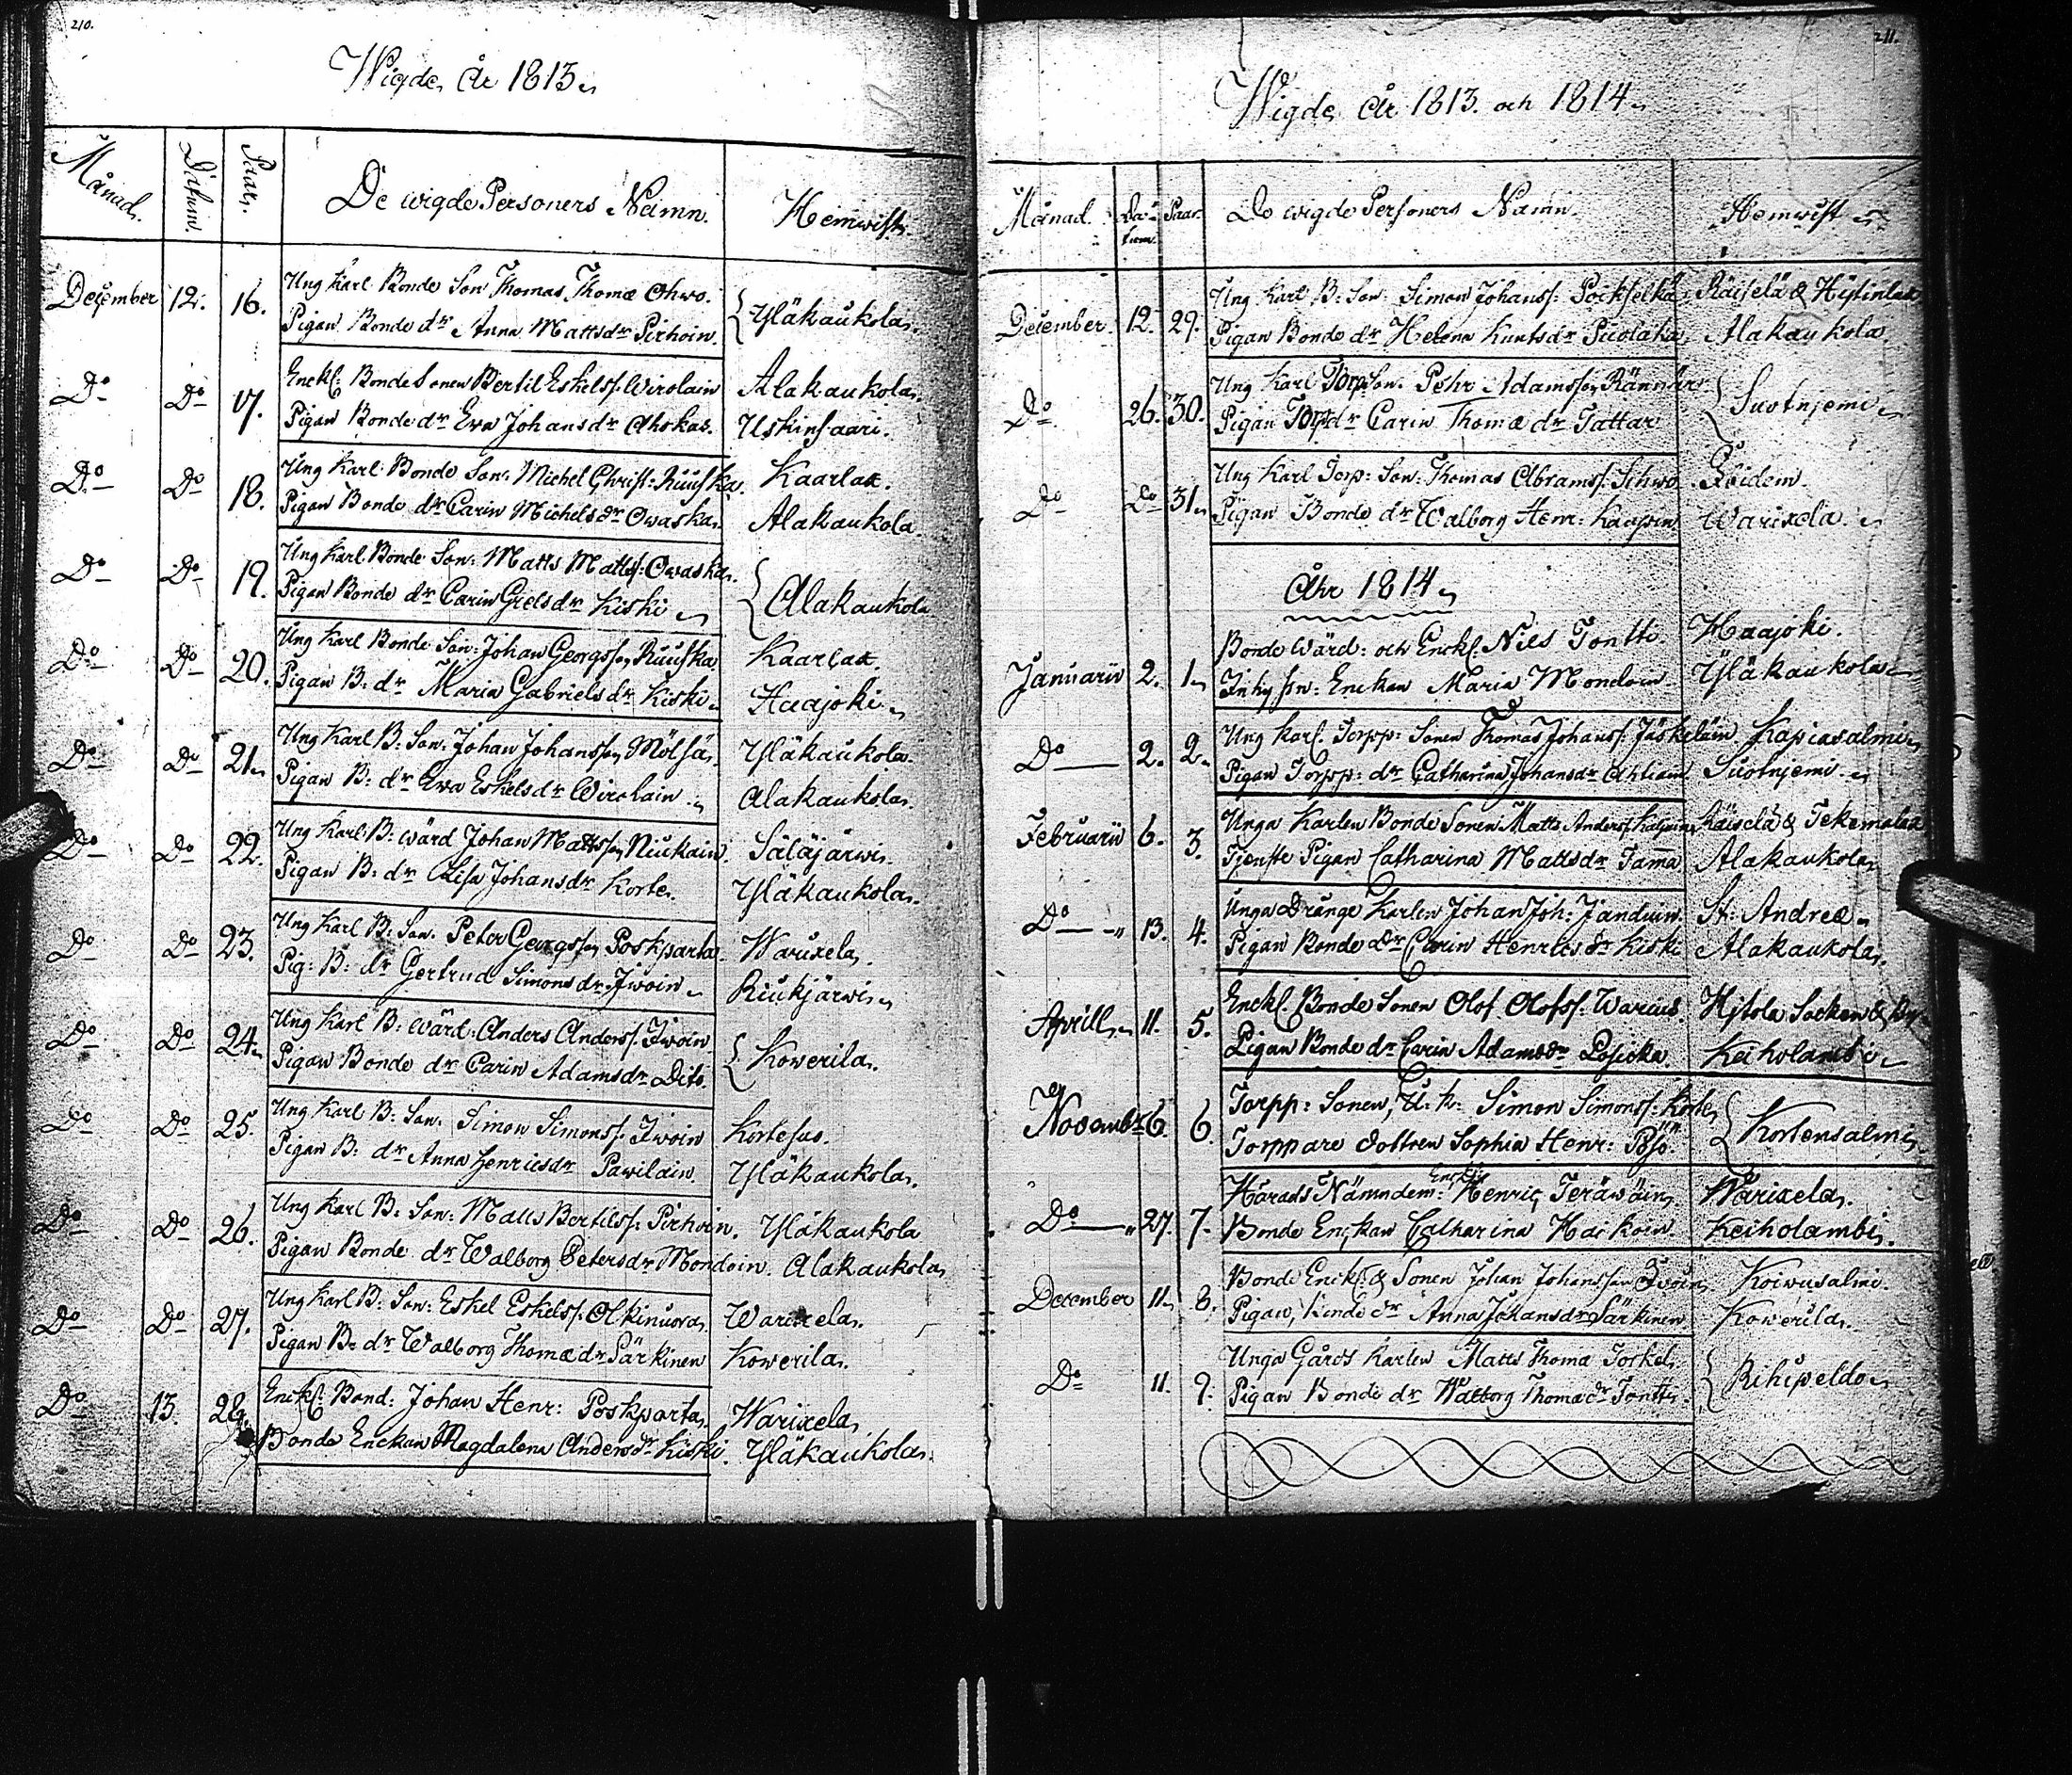 210.
Wigde År 1813
Månad. Datum Paar. De wigde Personers Namn. Hemwist.
December 12. 16. Ung Karl Bonde Son Thomas Thomæ Ohwo.
Pigan Bonde dr Anna Mattsdr Pirhoin. Yläkaukola.
Do Do 17. Enckl: Bonde Sonen Bertil Eskelss: Wirolain Alakaukola.
Pigan Bonde dr Ewa Johansdr Ahokas. Uskinsaari.
Do Do 18. Ung Karl Bonde Son: Michel Christ: Ruuska. Kaarlax.
Pigan Bonde dr Carin Michelsdr Owaska. Alakaukola.
Do Do 19. Ung Karl Bonde Son: Matts Mattss: Owaska.
Pigan Bonde dr Carin Grelsdr Kiski Alakaukola
Do Do 20. Ung Karl Bonde Son: Johan Georgsson Ruuska Kaarlax.
Pigan B: dr Maria Gabrielsdr Kiski Haajoki.
Do Do 21. Ung Karl B: Son: Johan Johansson Mölsä. Yläkaukola.
Pigan B: dr Ewa Eskelsdr Wirolain Alakaukola.
Do Do 22. Ung Karl B: wärd Johan Mattsson Niukain. Säläjärwi.
Pigan B: dr Lisa Johansdr Korte. Yläkaukola.
Do Do 23. Ung Karl B: Son. Peter Georgsson Poskparta. Warixela.
Pig: B: dr Gertrud Simonsdr Iwoin Riukjärwi.
Do Do 24. Ung Karl B: Wärd: Anders Anderss: Iwoin
Pigan Bonde dr Carin Adamsdr Dito. Kowerila.
Do Do 25. Ung Karl B: Son. Simon Simonss: Iwoin Kortesuo.
Pigan B: dr Anna Henricsdr Pawilain. Yläkaukola.
Do Do 26. Ung Karl B: Son: Matts Bertilss: Pirhoin. Yläkaukola
Pigan Bonde dr Walborg Petersdr Mondoin. Alakaukola
Do Do 27. Ung Karl B: Son: Eskel Eskelss: Olkinuora. Warixela.
Pigan B: dr Walborg Thomædr Särkinen Kowerila.
Do 13. 28. Enckl: Bond: Johan Henr: Poskparta. Warixela.
Bonde Enckan Magdalena Andersdr Kiski. Yläkaukola.
211.
Wigde År 1813. och 1814
Månad. Datum. Paar. De wigde Personers Namn. Hemwist
December. 12. 29. Ung Karl B: Son: Simon Johanss: Pockselkä Räiselä &
Pigan Bonde dr Helena Knutsdr Puolaka. Alakaukola.
Do 26. 30. Ung Karl Torp Son. Pehr Adamsson Rännär
Pigan Torp dr Carin Thomædr Tattar Suotnjemi
Do Do 31. Ung Karl Torp: Son: Thomas Abramss: Ihwo Ibidem.
Pigan Bonde dr Walborg Henr: Kaasin Warixela.
Åhr 1814
Januarii 2. 1. Bonde Wärd: och Enckl: Nils Tontti Haajoki.
Enckan Maria Mondoin Yläkaukola
Do 2. 2. Ung Karl. Torpp: Sonen Thomas Johanss: Jäskeläin Kapiasalmi
Pigan Torpp: dr Catharina Johansdr Ahtiain Suotnjemi.
Februarii 6. 3. Unga Karlen Bonde Sonen Matts Anderss: Räiselä & Tekemalax
Tjenste Pigan Catharina Mattsdr Tamma Alakaukola
Do 13. 4. Unga Dränge Karlen Johan Joh: Janduin. St: Andreæ
Pigan Bonde dr Carin Henricsdr Kiski Alakaukola.
Aprill 11. 5. Enckl: Bonde Sonen Olof Olofss: Warius. Hjtola Socken & By
Pigan Bonde dr Carin Adamsdr Keiholambi
Novembr 6. 6. Torpp: Sonen, U: K: Simon Simonss: Korte
Torppare Dottren Sophia Henr: Kortensalmi
Do 27. 7. Härads Nämndem: Encklin Henric Teräwäin Warixela.
Bonde Enckan Catharina Haikoin. Keiholambi.
December 11. 8. Bonde Enckl: & Sonen Johan Johansson Iwoin Koiwusalmi.
Pigan, Bonde dr Anna Johansdr Särkinen Kowerila.
Do 11. 9. Unga Gårds Karlen Matts Thomæ Torkel.
Pigan Bonde dr Walborg Thomædr Tontti. Rihipeldo